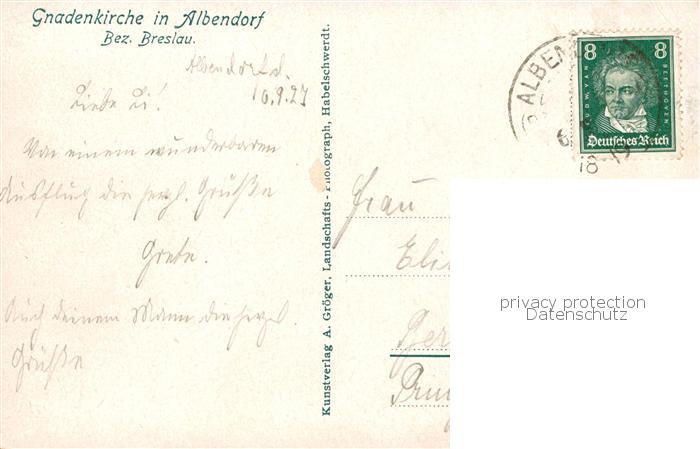 Gnadenkirche in Albendorf
Bez. Breslau.
Albendorf d.
6.9.27
Liebe Li!
Von einem wunderbaren
Ausflug die herzl. Grüße
Grete.
Auch deinem Mann die herzl.
Grüße
Kunstverlag A. Gröger, Landschafts-Photograph, Habelschwerdt.
ALBEN
8 8
LUDW. VAN BEETHOVEN
Deutsches Reich
Frau
privacy protection
Datenschutz